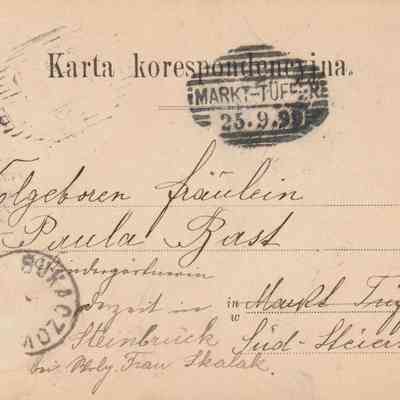 Karta korespondencyjna.
MARKT-TÜFFER
25.9.99
olgeboren fräulein
Paula Bast
Kindergärtnerin
derzeit in
in Markt Tüf
w
Steinbrück Süd-Steier
bei Wolg. Frau Skalak.
BUKACZOW